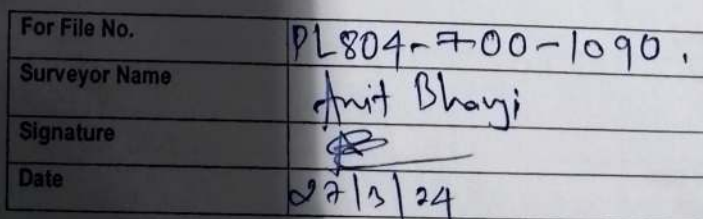 For File No. PL804-700-1090.
Surveyor Name Anit Bhangi
Signature
Date 27/3/24